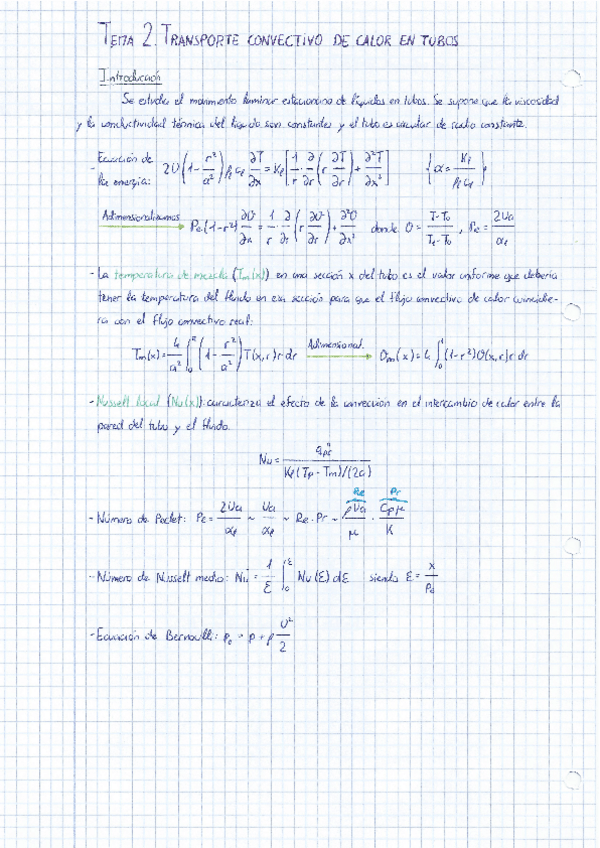 TEMA 2. TRANSPORTE CONVECTIVO DE CALOR EN TUBOS
Introducción
Se estudia el movimiento laminar estacionario de líquidos en tubos. Se supone que la viscosidad
y la conductividad térmica del líquido son constantes y el tubo es circular de radio constante.
- Ecuación de la energía: 2U(1 - r²/a²) ρₗcₗ ∂T/∂x = Kₗ[1/r ∂/∂r (r ∂T/∂r) + ∂²T/∂x²] {α = Kₗ/ρₗcₗ}
Adimensionalizamos → Pe(1-r²) ∂θ/∂x = 1/r ∂/∂r (r ∂θ/∂r) + ∂²θ/∂x² donde θ = T-T₀/T₁-T₀, Pe = 2Ua/αₗ
- La temperatura de mezcla (Tm(x)) en una sección x del tubo es el valor uniforme que debería
tener la temperatura del fluido en esa sección para que el flujo convectivo de calor coincidie-
ra con el flujo convectivo real:
Tm(x) = 4/a² ∫₀ᵃ (1 - r²/a²) T(x,r) r dr Adimensional. → θm(x) = 4 ∫₀¹ (1-r²) θ(x,r) r dr
- Nusselt local (Nu(x)): caracteriza el efecto de la convección en el intercambio de calor entre la
pared del tubo y el fluido.
Nu = /Kₗ(Tp - Tm)/(2a)
Re Pr
- Número de Peclet: Pe = 2Ua/αₗ ~ Ua/αₗ ~ Re · Pr ~ ρUa/μ · Cpμ/K
- Número de Nusselt medio: Nu = 1/ξ ∫₀^ξ Nu(ξ) dξ siendo ξ = x/Pe
- Ecuación de Bernoulli: p₀ = p + ρ U²/2